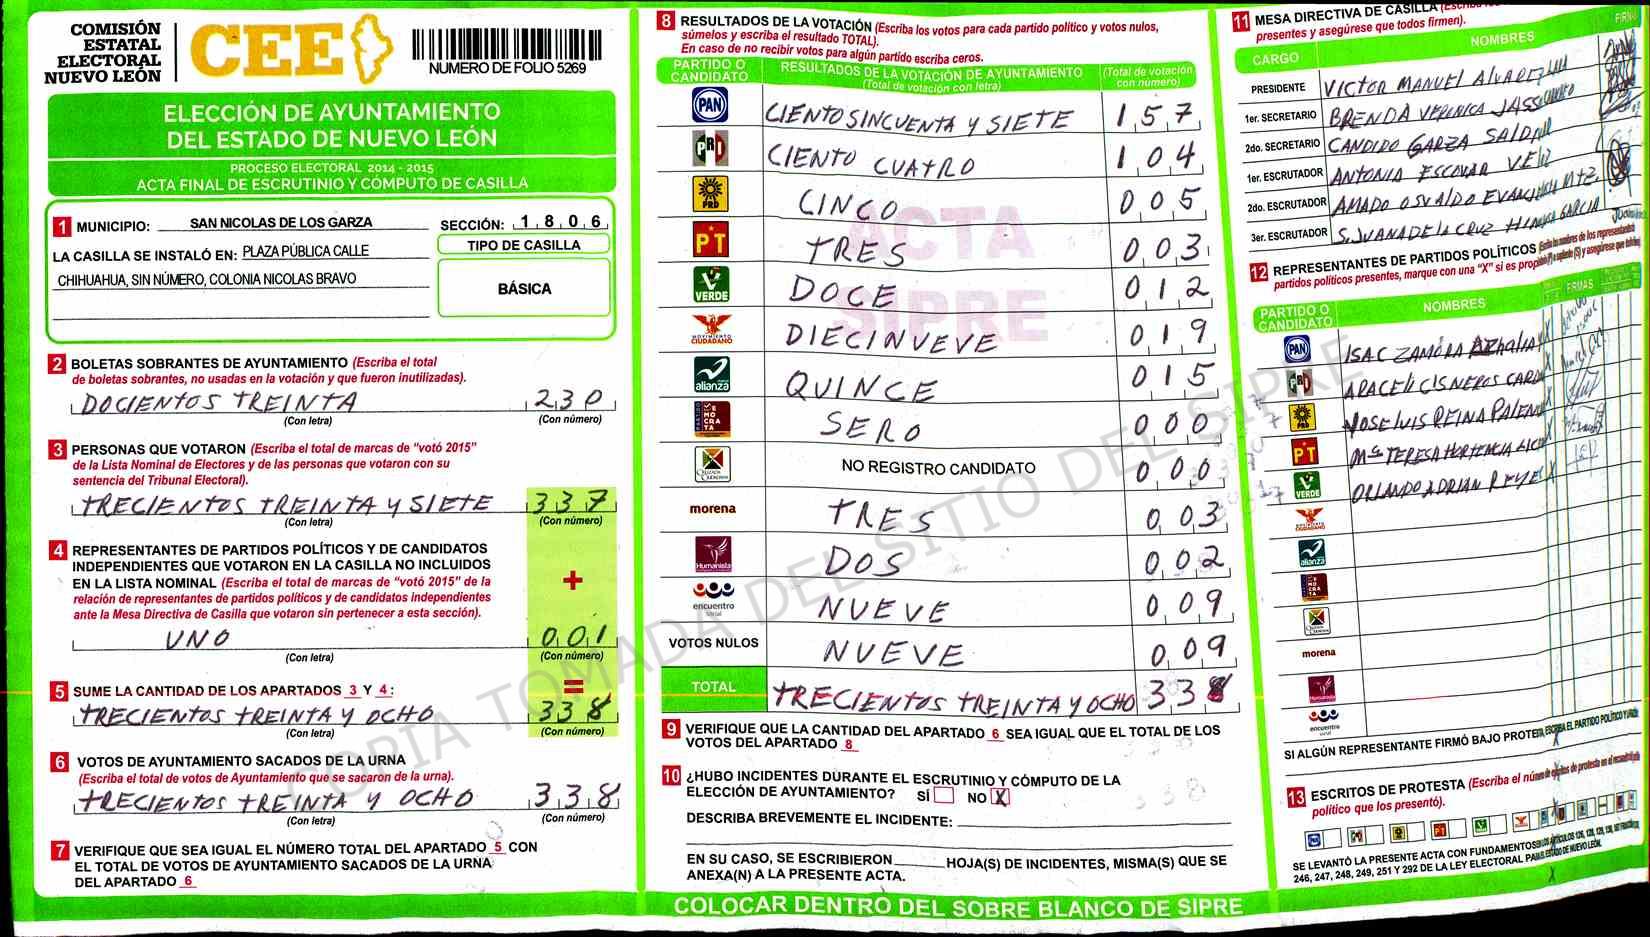 COMISIÓN
ESTATAL
ELECTORAL
NUEVO LEÓN
CEE
NUMERO DE FOLIO 5269
ELECCIÓN DE AYUNTAMIENTO
DEL ESTADO DE NUEVO LEÓN
PROCESO ELECTORAL 2014 - 2015
ACTA FINAL DE ESCRUTINIO Y CÓMPUTO DE CASILLA
1 MUNICIPIO: SAN NICOLAS DE LOS GARZA SECCIÓN: 1806
LA CASILLA SE INSTALÓ EN: PLAZA PÚBLICA CALLE
CHIHUAHUA, SIN NÚMERO, COLONIA NICOLAS BRAVO
TIPO DE CASILLA
BÁSICA
2 BOLETAS SOBRANTES DE AYUNTAMIENTO (Escriba el total
de boletas sobrantes, no usadas en la votación y que fueron inutilizadas).
DOCIENTOS TREINTA 230
(Con letra) (Con número)
3 PERSONAS QUE VOTARON (Escriba el total de marcas de "votó 2015"
de la Lista Nominal de Electores y de las personas que votaron con su
sentencia del Tribunal Electoral).
TRECIENTOS TREINTA Y SIETE 337
(Con letra) (Con número)
4 REPRESENTANTES DE PARTIDOS POLÍTICOS Y DE CANDIDATOS
INDEPENDIENTES QUE VOTARON EN LA CASILLA NO INCLUIDOS
EN LA LISTA NOMINAL (Escriba el total de marcas de "votó 2015" de la
relación de representantes de partidos políticos y de candidatos independientes
ante la Mesa Directiva de Casilla que votaron sin pertenecer a esta sección).
+
UNO 001
(Con letra) (Con número)
=
5 SUME LA CANTIDAD DE LOS APARTADOS 3 Y 4:
TRECIENTOS TREINTA Y OCHO 338
(Con letra) (Con número)
6 VOTOS DE AYUNTAMIENTO SACADOS DE LA URNA
(Escriba el total de votos de Ayuntamiento que se sacaron de la urna).
TRECIENTOS TREINTA Y OCHO 338
(Con letra) (Con número)
7 VERIFIQUE QUE SEA IGUAL EL NÚMERO TOTAL DEL APARTADO 5 CON
EL TOTAL DE VOTOS DE AYUNTAMIENTO SACADOS DE LA URNA
DEL APARTADO 6
8 RESULTADOS DE LA VOTACIÓN (Escriba los votos para cada partido político y votos nulos,
súmelos y escriba el resultado TOTAL).
En caso de no recibir votos para algún partido escriba ceros.
PARTIDO O CANDIDATO
RESULTADOS DE LA VOTACIÓN DE AYUNTAMIENTO
(Total de votación con letra)
(Total de votación con número)
PAN CIENTO SINCUENTA Y SIETE 157
PRI CIENTO CUATRO 104
PRD CINCO 005
PT TRES 003
VERDE DOCE 012
MOVIMIENTO CIUDADANO DIECINUEVE 019
alianza QUINCE 015
SERO 000
NO REGISTRO CANDIDATO 000
morena TRES 003
Humanista DOS 002
encuentro social NUEVE 009
VOTOS NULOS NUEVE 009
TOTAL TRECIENTOS TREINTA Y OCHO 338
ACTA
SIPRE
COPIA TOMADA DEL SITIO DEL SIPRE
9 VERIFIQUE QUE LA CANTIDAD DEL APARTADO 6 SEA IGUAL QUE EL TOTAL DE LOS
VOTOS DEL APARTADO 8
10 ¿HUBO INCIDENTES DURANTE EL ESCRUTINIO Y CÓMPUTO DE LA
ELECCIÓN DE AYUNTAMIENTO? SÍ NO X
DESCRIBA BREVEMENTE EL INCIDENTE:
EN SU CASO, SE ESCRIBIERON HOJA(S) DE INCIDENTES, MISMA(S) QUE SE
ANEXA(N) A LA PRESENTE ACTA.
COLOCAR DENTRO DEL SOBRE BLANCO DE SIPRE
11 MESA DIRECTIVA DE CASILLA
presentes y asegúrese que todos firmen).
CARGO NOMBRES
PRESIDENTE VICTOR MANUEL ALVAREZ
1er. SECRETARIO BRENDA VERONICA
2do. SECRETARIO CANDIDO GARZA
1er. ESCRUTADOR ANTONIA ESCOVAR
2do. ESCRUTADOR AMADO OSVALDO
3er. ESCRUTADOR S. JUANA DE LA CRUZ GARCIA
12 REPRESENTANTES DE PARTIDOS POLÍTICOS
partidos políticos presentes, marque con una "X" si es
PARTIDO O CANDIDATO
NOMBRES
FIRMAS
PAN ISAC ZAMORA
PRI ARACELI CISNEROS
PRD JOSE LUIS REINA
PT Ma TERESA HORTENCIA
VERDE ORLANDO ADRIAN REYES
alianza
morena
Humanista
encuentro social
SI ALGÚN REPRESENTANTE FIRMÓ BAJO PROTESTA, ESCRIBA EL PARTIDO POLÍTICO
13 ESCRITOS DE PROTESTA (Escriba el número de escritos de protesta en el
político que los presentó).
SE LEVANTÓ LA PRESENTE ACTA CON FUNDAMENTO
246, 247, 248, 249, 251 Y 292 DE LA LEY ELECTORAL PARA EL ESTADO DE NUEVO LEÓN.